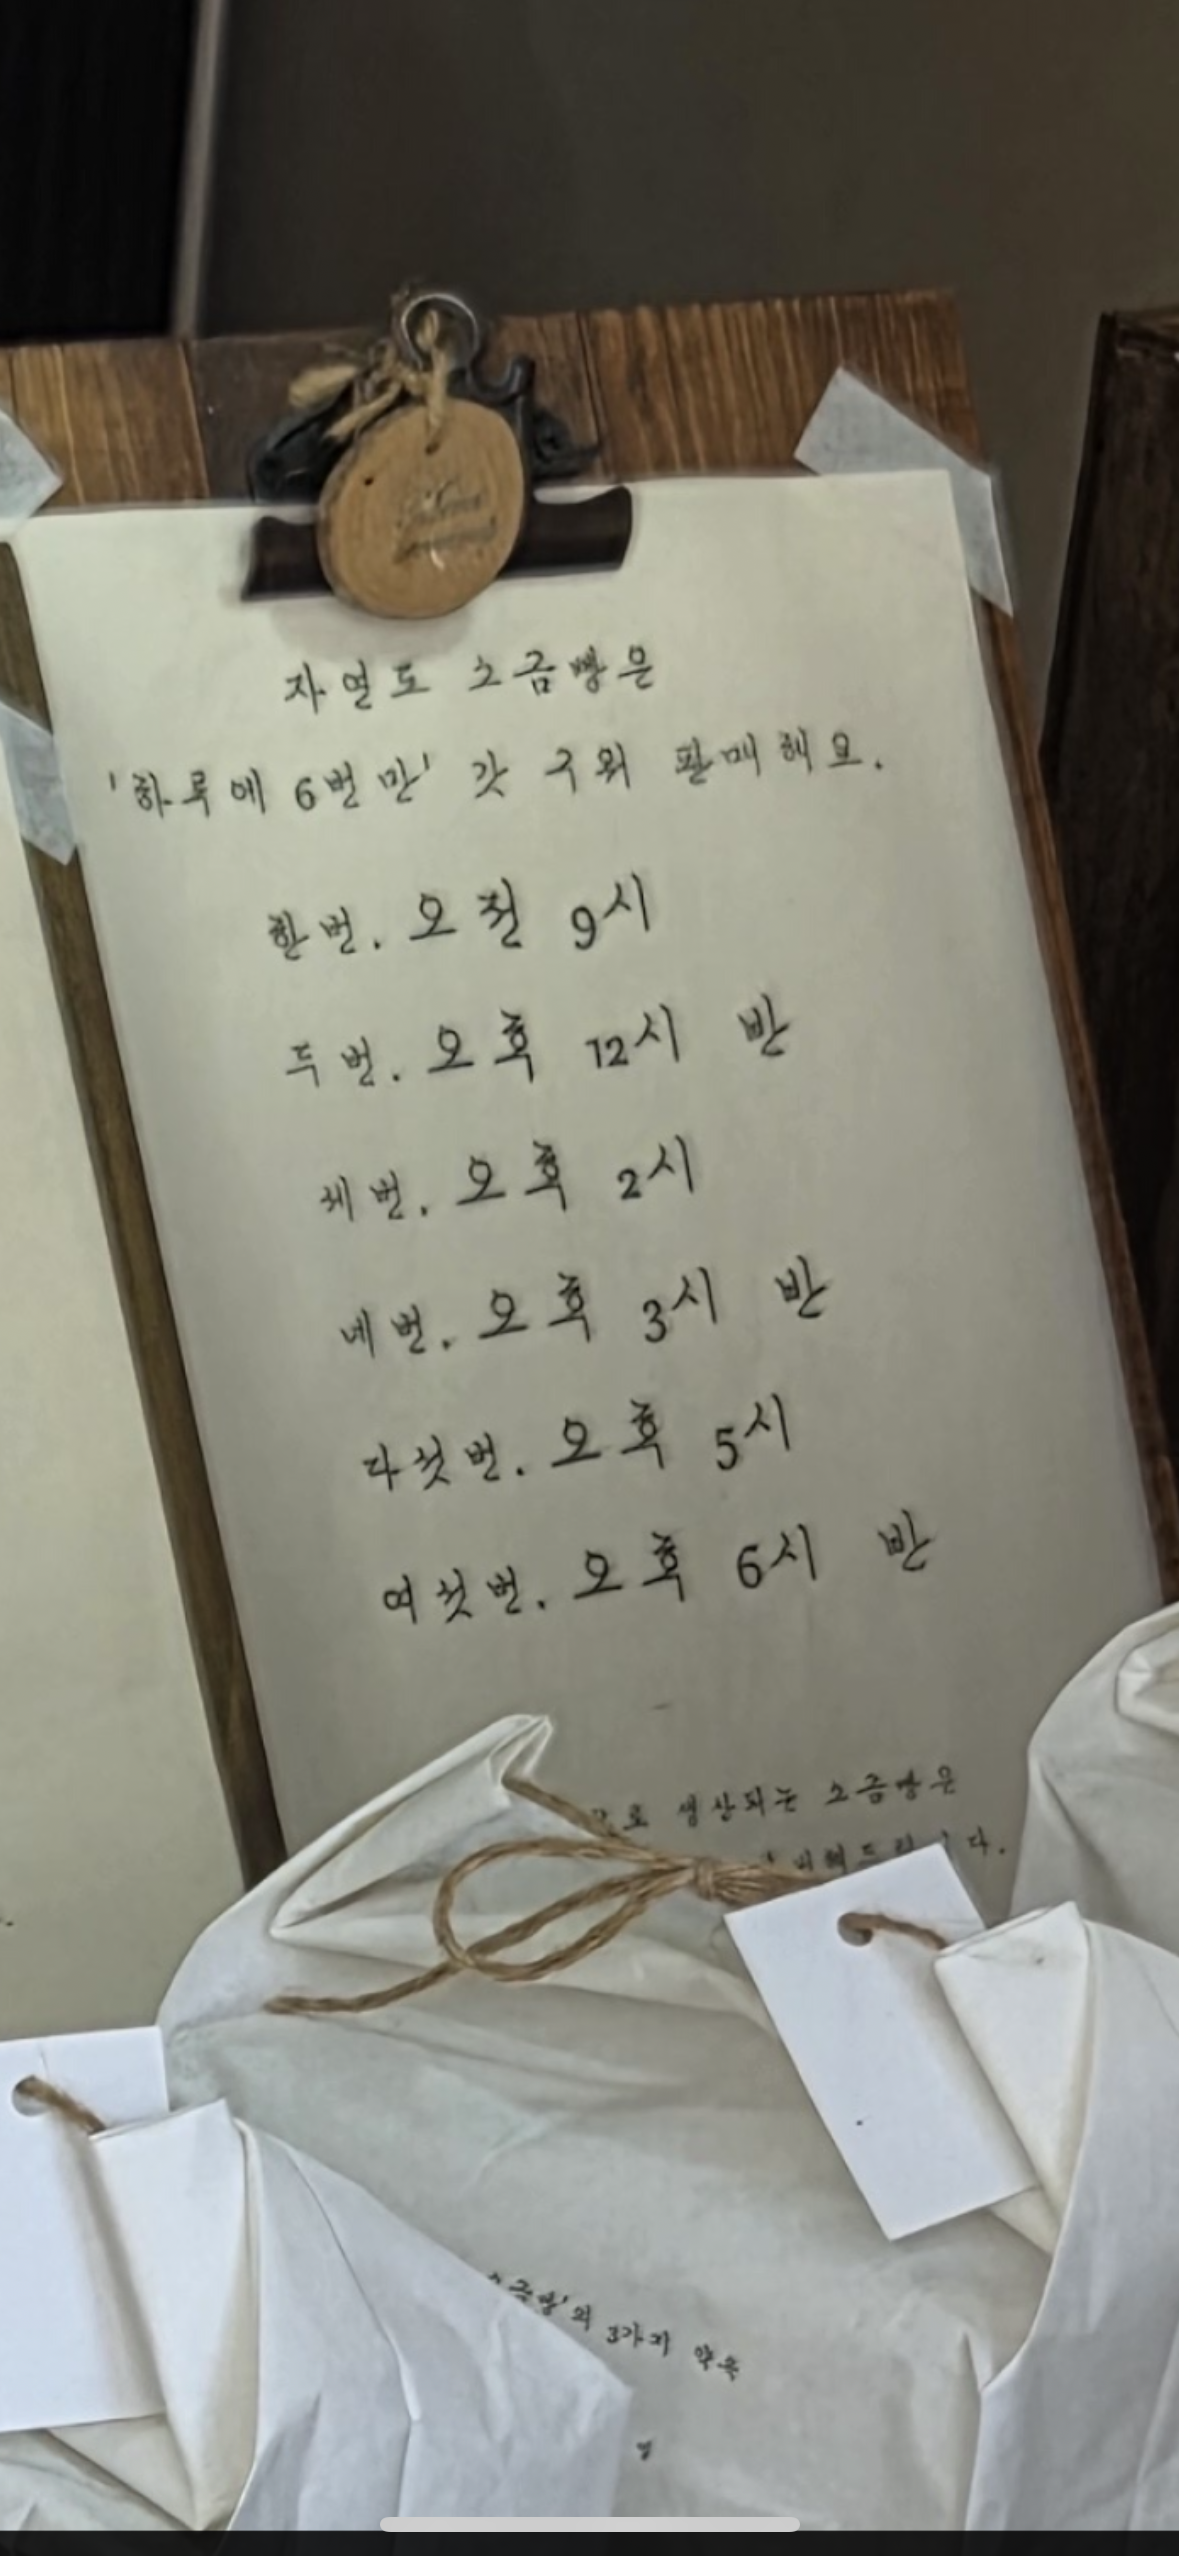 자연도 소금빵은
'하루에 6번만' 갓 구워 판매해요.
한번. 오전 9시
두번. 오후 12시 반
세번. 오후 2시
네번. 오후 3시 반
다섯번. 오후 5시
여섯번. 오후 6시 반
생산되는 소금빵은
소금빵'의 3가지 약속